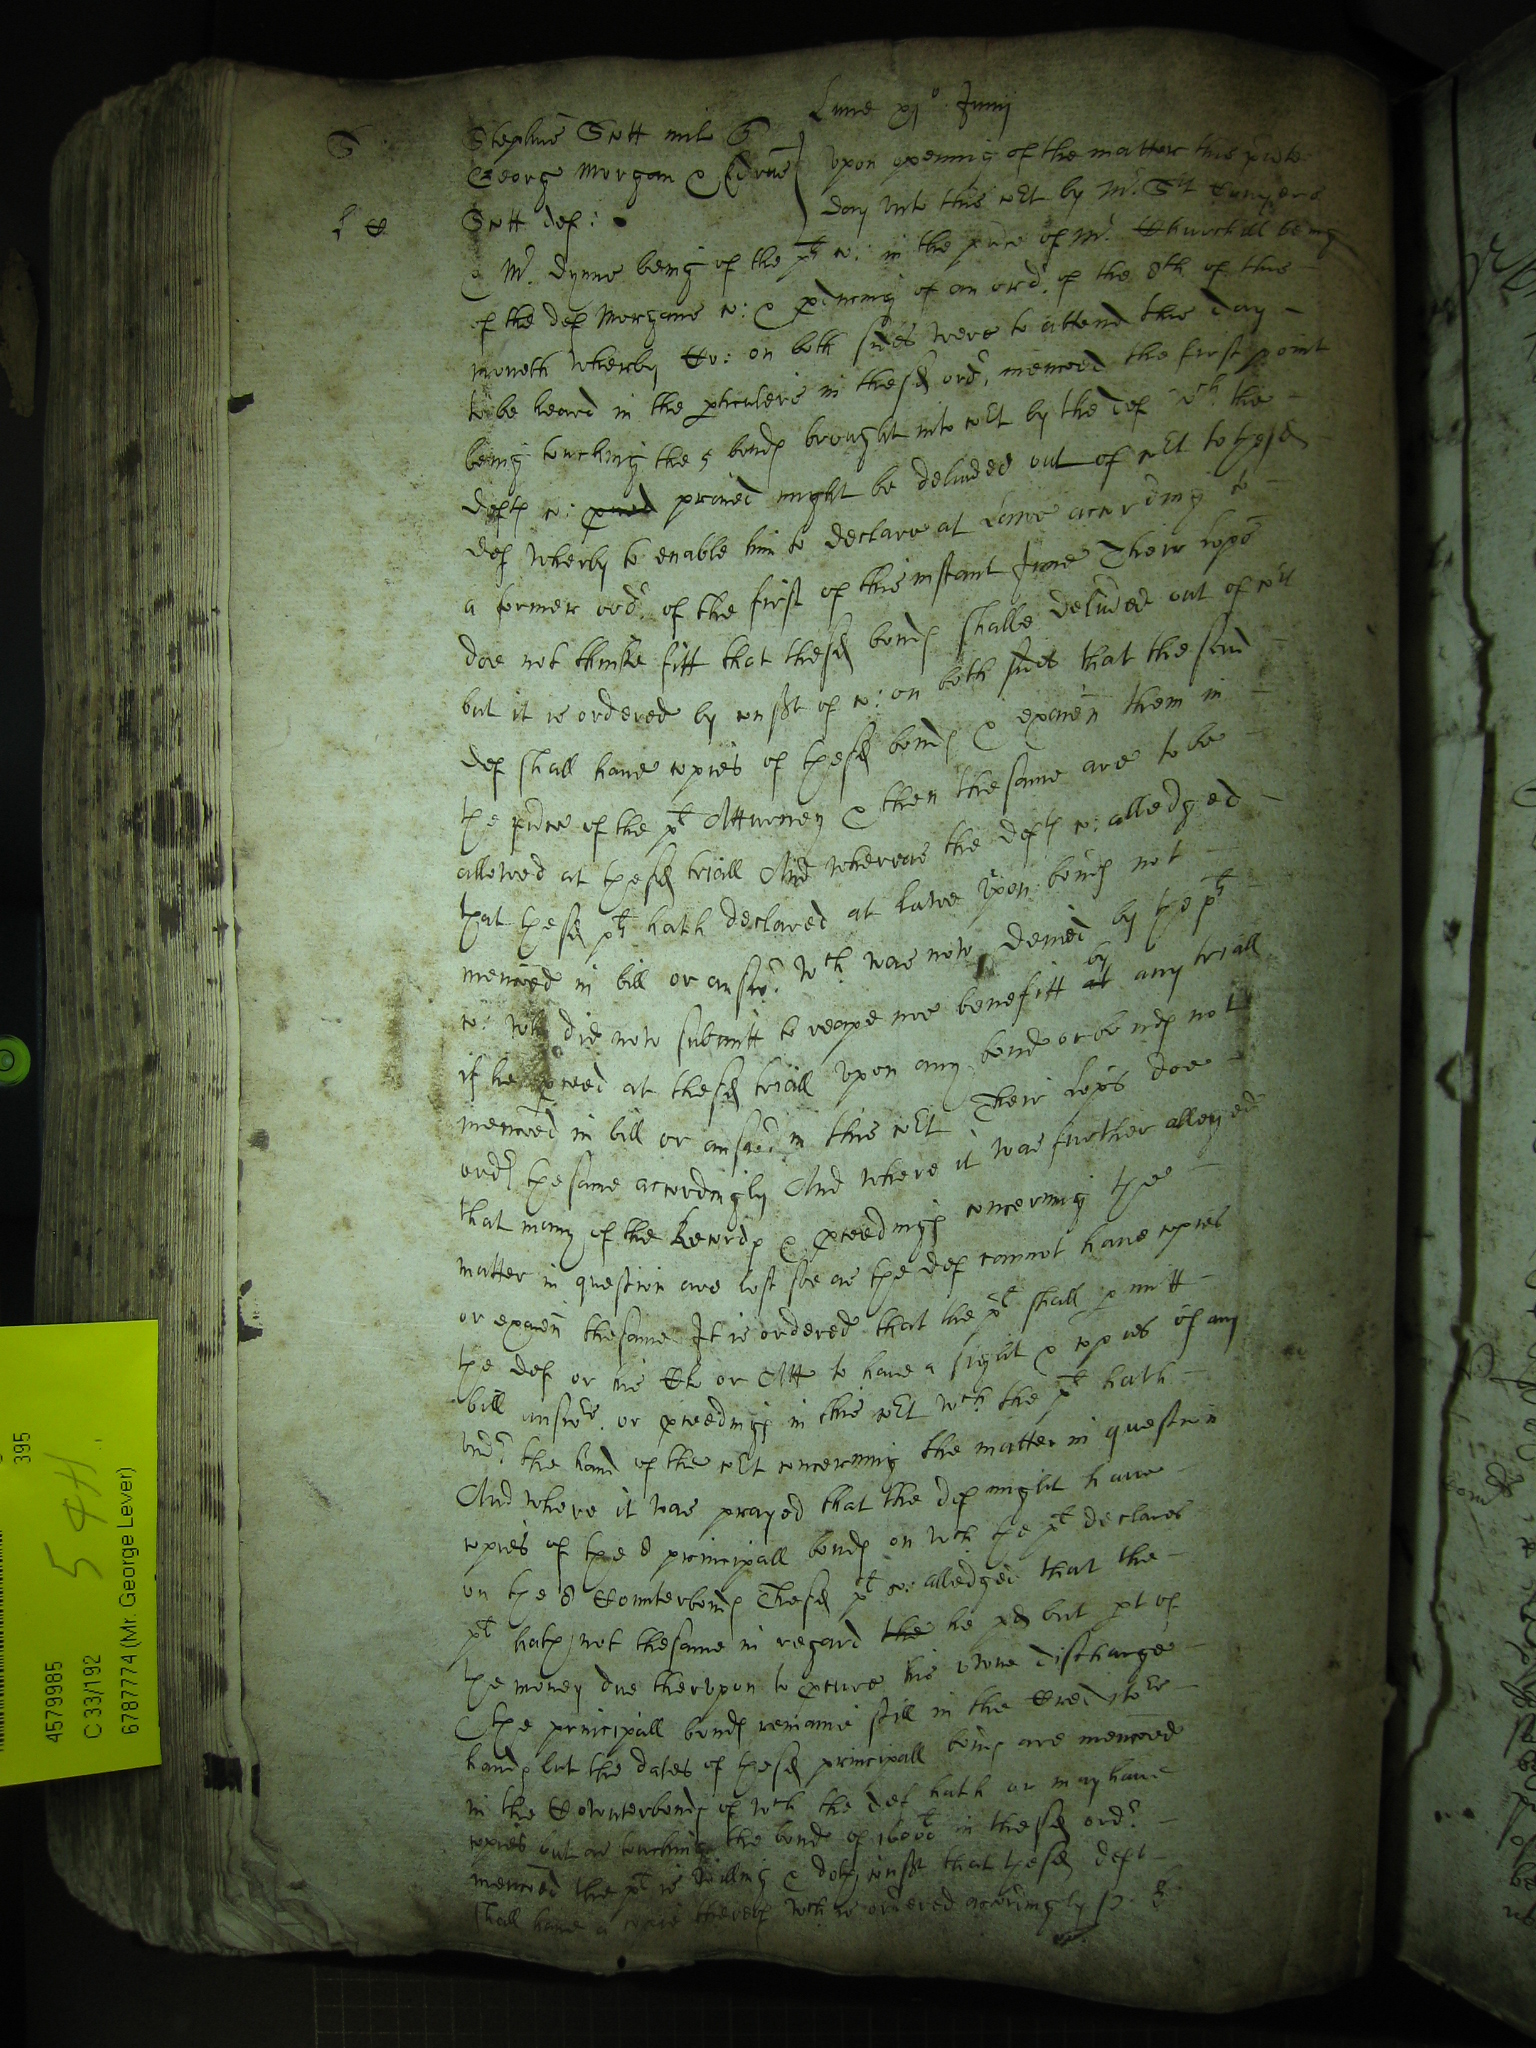 Lune xj° Junij
S
Stephus Scott mil q
George Morgan & Edrus
Scott def:
l
Upon opening of the matter this pnte
day unto this cot by Mr. Sit
& Mr. Dynne being of the plt co: in the pnce of Mr. Churchill being
of the def Morgans co: & pducing of an ord. of the 8th of this
moneth wherby Co: on both sides were to attend this day
to be heard in the pticulers in the sd ordr menced the first point
being touching the 5 bonds brought into cot by the def wch the
defts co: prayed might be delivred out of cot to the sd
def wherby to enable him to declare at Lawe according to
a former ord. of the first of this instant June Their lops
doe not thinke fitt that the sd bonds shalbe delivred out of cot
but it is ordered by consent of co: on both sides that the said
def shall have copies of the sd bonds & examen them in
the pnce of the plt Atturney & then the same are to be
allowed at the sd triall And whereas the defts co: alledged
that the sd plt hath declared at Lawe upon bonds not
menced in bill or answr wch was now denied by the plts
co: who did now submitt to reape noe benefitt at by any triall
if he pceed at the sd triall upon any bond or bonds not
menced in bill or answr in this cot Their Lops doe
ordr the same accordingly And where it was further alleged
that many of the Records & pceedings concerning the
matter in question are lost soe as the def cannot have copies
or examen the same It is ordered that the plt shall pmitt
the def or his Cl or Att to have a sight & copies of any
bill answre or pceedings in this cot wch the plt hath
undr the hand of the cot concerning the matter in question
And where it was prayed that the def might have
copies of the 8 principall bonds on wch the plt declares
on the 8 Counterbonds The sd plts co: alledged that the
plt hath not the same in regard the he pd but pt of
the money due therupon to pcure his owne discharge
& the principall bonds remaine still in the Creditors
hands but the dates of the sd principall bonds are menced
in the Counterbonds of wch the def hath or may have
copies but as touching the bond of 1600l in the sd ordr
menced the plt is willing & doth consent that the sd deft
shall have a copie therof wch is ordered accordingly
4579985
C 33/192
6787774 (Mr. George Lever)
395
5 4H